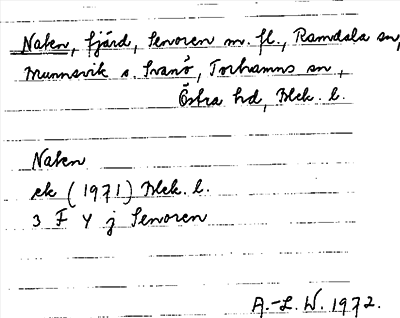 Naken, fjärd, Senoren m. fl., Ramdala sn,
Munnsvik s. Svanö, Torhamns sn,
Östra hd, Blek. l.
Naken
ek (1971) Blek. l.
3 F Y j Senoren
A.-L. W. 1972.